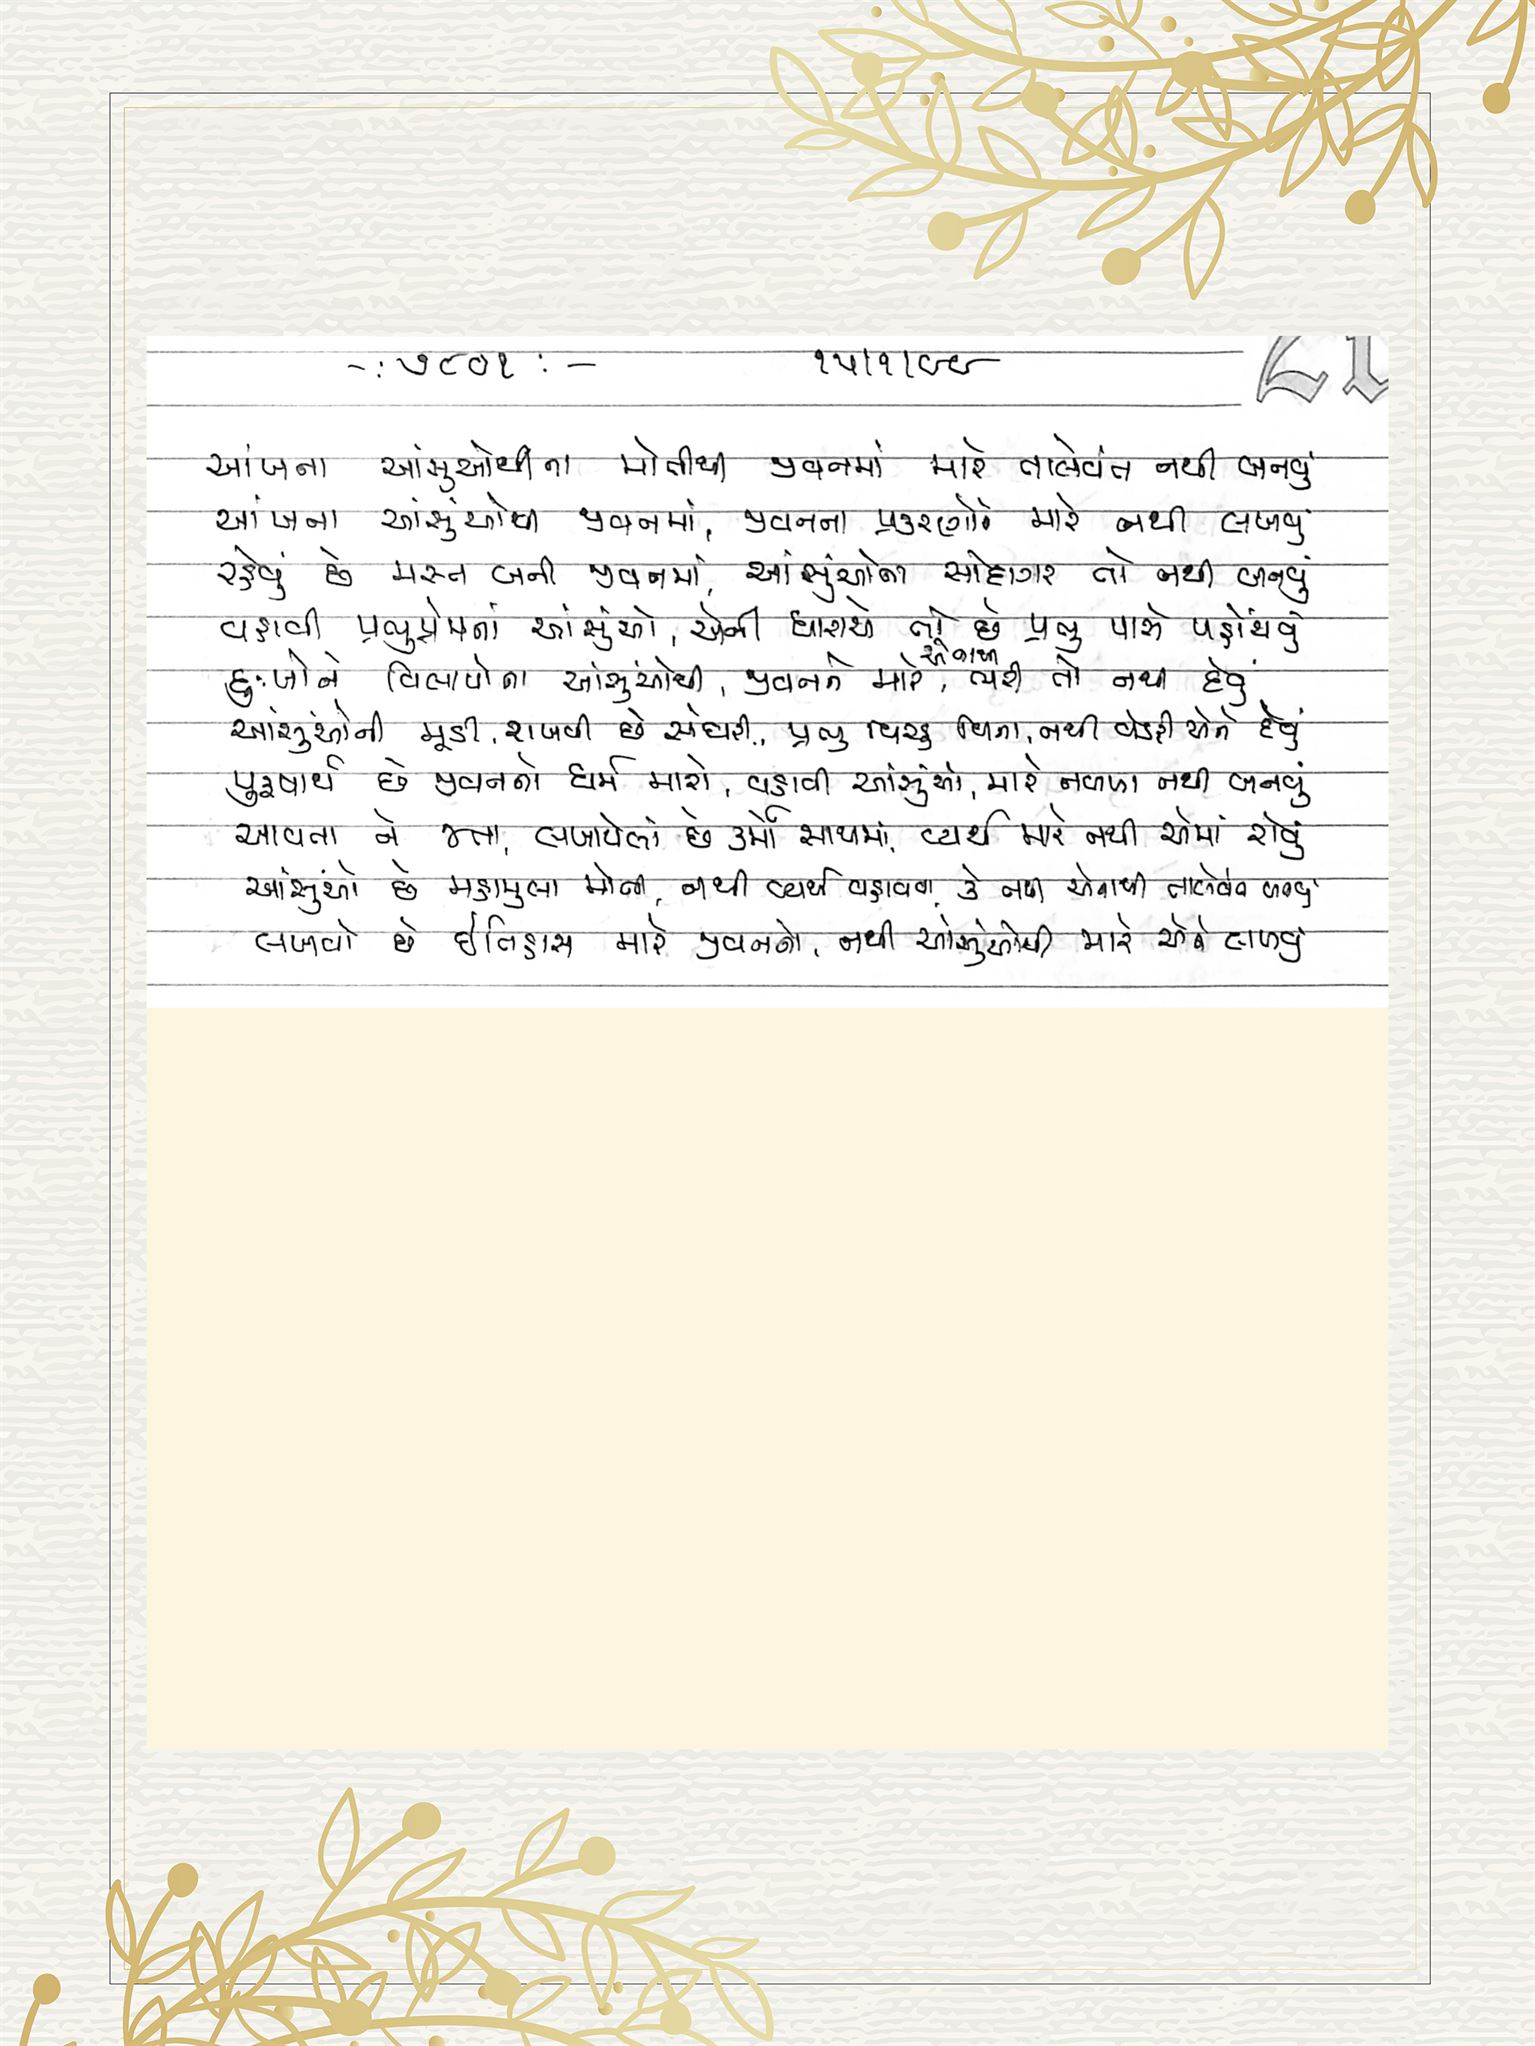 -: ૭૮૦૧ : - ૧૫।૧।૯૯
આંખના આંસુઓથીના મોતીથી જીવનમાં મારે તાલેવંત નથી બનવું
આંખના આંસુંઓથી જીવનમાં, જીવનના પ્રકરણોને મારે નથી લખવું
રહેવું છે મસ્ત બની જીવનમાં, આંસુંઓના સોદાગર તો નથી બનવું
વહાવી પ્રભુપ્રેમનાં આંસુંઓ, એની ધારાએ તો છે પ્રભુ પાસે પહોંચવું
દુઃખોને વિલાપોના આંસુંઓથી, જીવનને મારે, એનાથી ભરી તો નથી દેવું
આંસુંઓની મૂડી, રાખવી છે સંઘરી, પ્રભુ વિરહ વિના, નથી વેડફી એને દેવું
પુરૂષાર્થ છે જીવનનો ધર્મ મારો, વહાવી આંસુંઓ, મારે નબળા નથી બનવું
આવતા ને જતા, લખાયેલાં છે કર્મો સાથમાં, વ્યર્થ મારે નથી એમાં રોવું
આંસુંઓ છે મહામુલા મોતી, નથી વ્યર્થ વહાવવા, કે નથી એનાથી તાલેવંત બનવું
લખવો છે ઈતિહાસ મારે જીવનનો, નથી આંસુંઓથી મારે એને લખવું